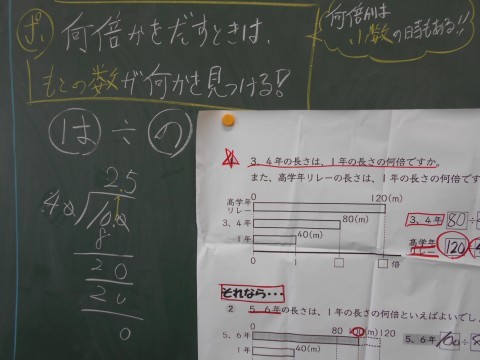 ポ 何倍かをだすときは、
もとの数が何かを見つける!
何倍かは
小数の日時もある!!
は ÷ の
2.5
40)100
8
20
20
0
3、4年の長さは、1年の長さの何倍ですか。
また、高学年リレーの長さは、1年の長さの何倍です
0 120(m)
高学年
リレー
80(m)
3、4年
40(m)
1年
0 1 倍
3、4年 80÷
高学年
リレー 120
それなら・・・
2 5、6年の長さは、1年の長さの何倍といえばよいでし
0 80 100(m)120
5、6年
40(m)
1年
5、6年 100÷